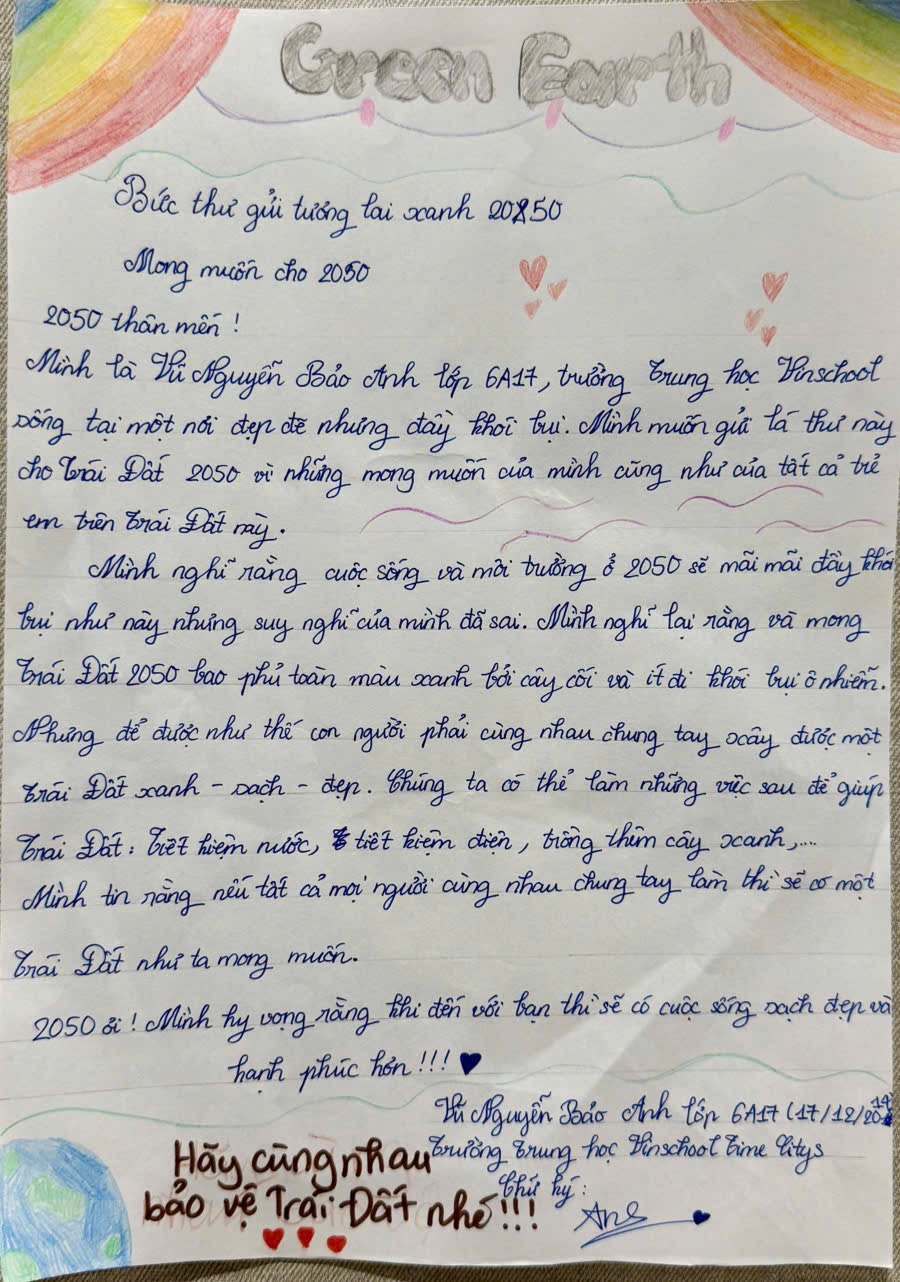 Green Earth
Bức thư gửi tương lai xanh 2050
Mong muốn cho 2050
2050 thân mến !
Mình là Vũ Nguyễn Bảo Anh lớp 6A17, trường Trung học Vinschool
sống tại một nơi đẹp đẽ nhưng đầy khói bụi. Mình muốn gửi lá thư này
cho Trái Đất 2050 vì những mong muốn của mình cũng như của tất cả trẻ
em trên Trái Đất này.
Mình nghĩ rằng cuộc sống và môi trường ở 2050 sẽ mãi mãi đầy khói
bụi như này nhưng suy nghĩ của mình đã sai. Mình nghĩ lại rằng và mong
Trái Đất 2050 bao phủ toàn màu xanh bởi cây cối và ít đi khói bụi ô nhiễm.
Nhưng để được như thế con người phải cùng nhau chung tay xây được một
Trái Đất xanh - sạch - đẹp. Chúng ta có thể làm những việc sau để giúp
Trái Đất : Tiết kiệm nước, tiết kiệm điện, trồng thêm cây xanh,....
Mình tin rằng nếu tất cả mọi người cùng nhau chung tay làm thì sẽ có một
Trái Đất như ta mong muốn.
2050 ơi ! Mình hy vọng rằng khi đến với bạn thì sẽ có cuộc sống sạch đẹp và
hạnh phúc hơn !!!
Vũ Nguyễn Bảo Anh lớp 6A17 (17/12/2014
Trường Trung học Vinschool Time Citys
Chữ ký :
Anh
Hãy cùng nhau
bảo vệ Trái Đất nhé !!!